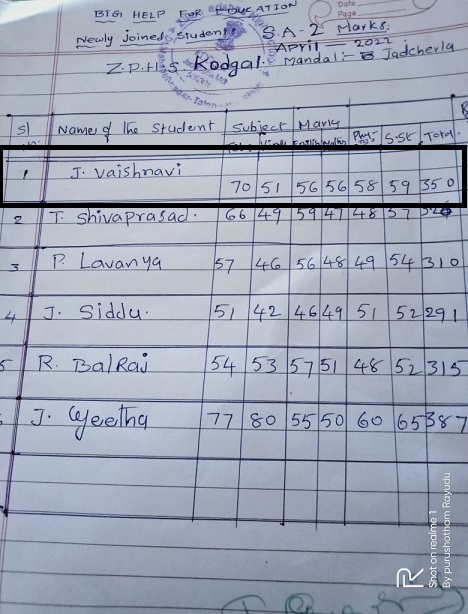 Date
Page
BIG HELP FOR EDUCATION
Newly joined Students S.A-2 Marks.
April - 2022
Z.P.H.S. Kodgal. Mandal:- Jadcherla
Sl Names of the Student Subject Marks
No. Hindi English Maths S.St Total
1 J. Vaishnavi 70 51 56 56 58 59 350
2 T. Shivaprasad. 66 49 59 47 48 57
3 P. Lavanya 57 46 56 48 49 54 310
4 J. Siddu. 51 42 46 49 51 52 291
5 R. BalRaj 54 53 57 51 48 52 315
J. Geetha 77 80 55 50 60 65 387
R
Shot on realme 1
By purushotham Rayudu